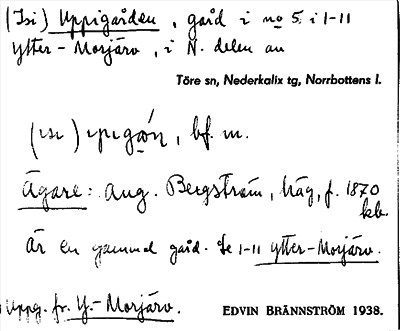 (Isi) Uppigården, gård i no 5 i 1-11
Ytter-Morjärv, i N. delen av
Töre sn, Nederkalix tg, Norrbottens l.
bf. m.
Ägare: Aug. Bergström, häg, f. 1870
kb.
Är en gammal gård. Se 1-11 Ytter-Morjärv.
Uppg. fr. Y.-Morjärv.
EDVIN BRÄNNSTRÖM 1938.